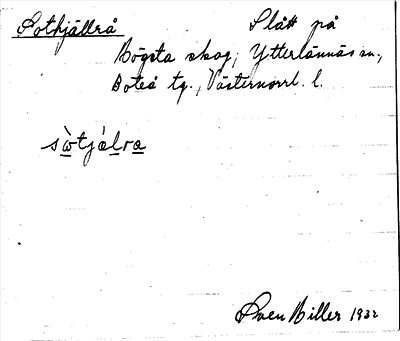 Sotkjällrå Slått på
Högsta skog, Ytterlännäs sn.,
Boteå tg., Västernorrl. l.
sòtjálra
Sven Hiller 1932